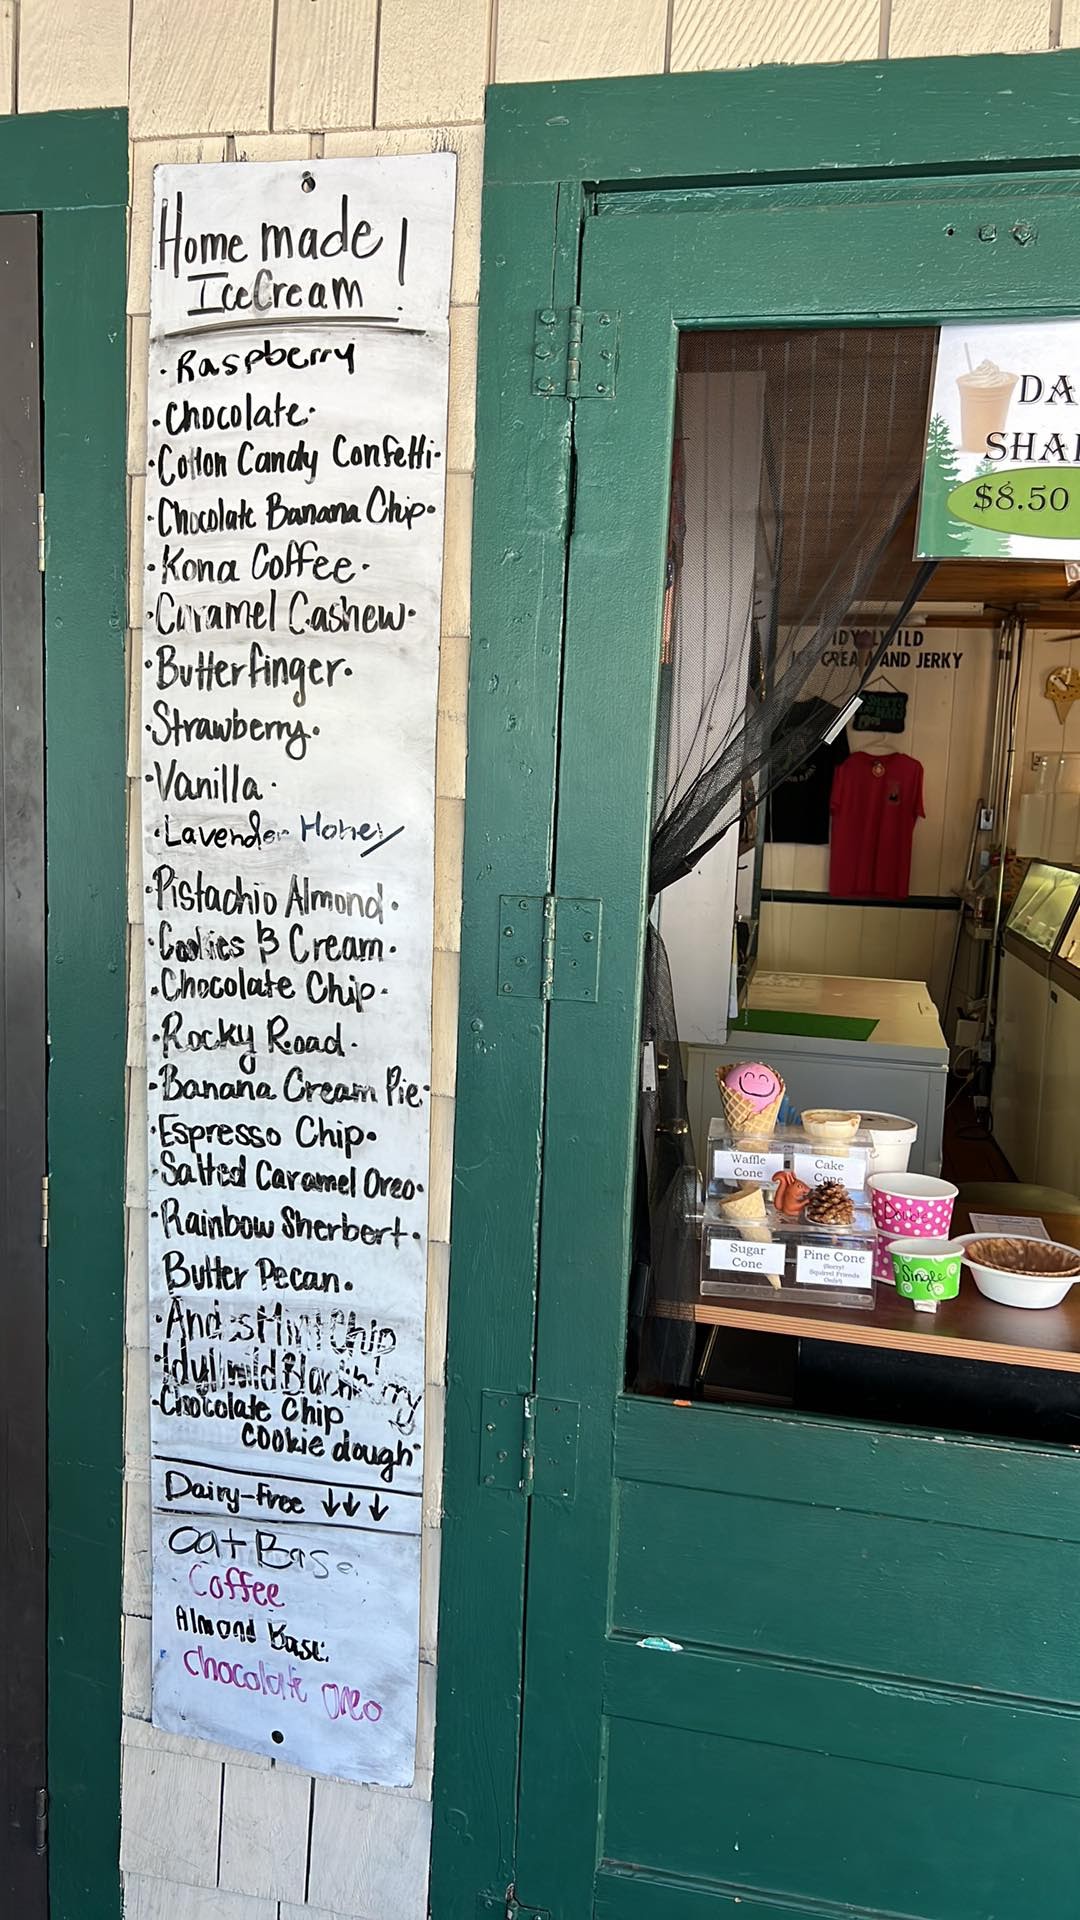 Home made
Ice Cream !
· Raspberry
· Chocolate ·
· Cotton Candy Confetti ·
· Chocolate Banana Chip ·
· Kona Coffee ·
· Caramel Cashew ·
· Butterfinger ·
· Strawberry ·
· Vanilla ·
· Lavender Honey
· Pistachio Almond ·
· Cookies & Cream ·
· Chocolate Chip ·
· Rocky Road ·
· Banana Cream Pie ·
· Espresso Chip ·
· Salted Caramel Oreo ·
· Rainbow Sherbert ·
Butter Pecan ·
· Andes Mint Chip
· Idyllwild Blackberry
· Chocolate Chip
cookie dough
Dairy-Free ↓↓↓
Oat Base
Coffee
Almond Base:
chocolate oreo
DA
SHA
$8.50
IDYLLWILD
ICE CREAM AND JERKY
Waffle
Cone
Cake
Cone
Sugar
Cone
Pine Cone
(Sorry!
Squirrel Friends
Only!)
Double
Single